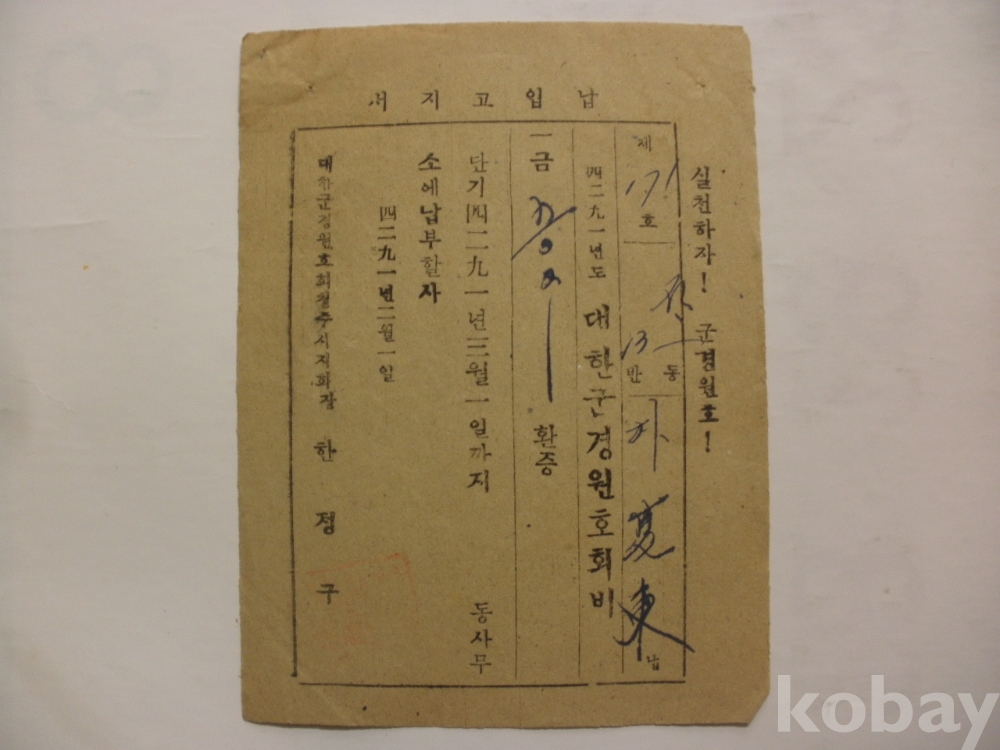 실천하자! 군경원호!
납입고지서
제 171 호
13 반 동
夏東 납
四二九一년도 대한군경원호회비
一금
환증
단기四二九一년三월一일까지 동사무
소에납부할사
四二九一년二월一일
대한군경원호회청주시지회장 한정구
kobay